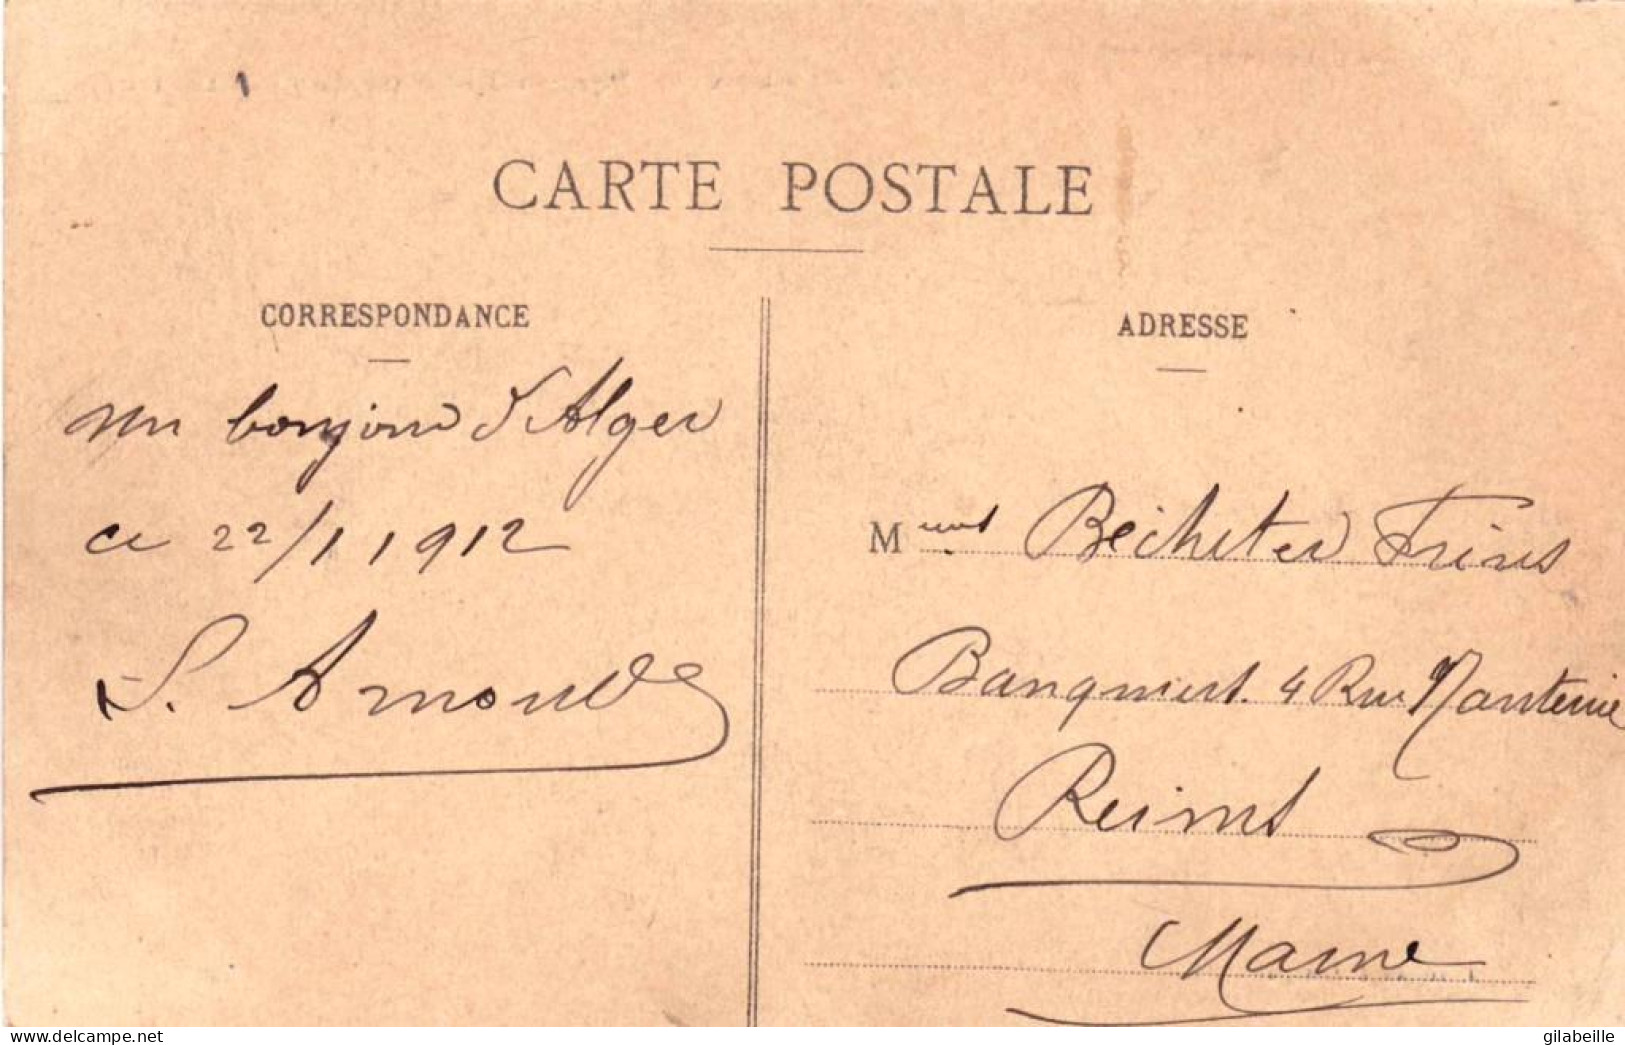 CARTE POSTALE
CORRESPONDANCE
un bonjour d'Alger
ce 22/1 1912
S. Arnould
ADRESSE
M
Frères
Banquiers. 4 Rue
Reims
Marne
www.delcampe.net
gilabeille